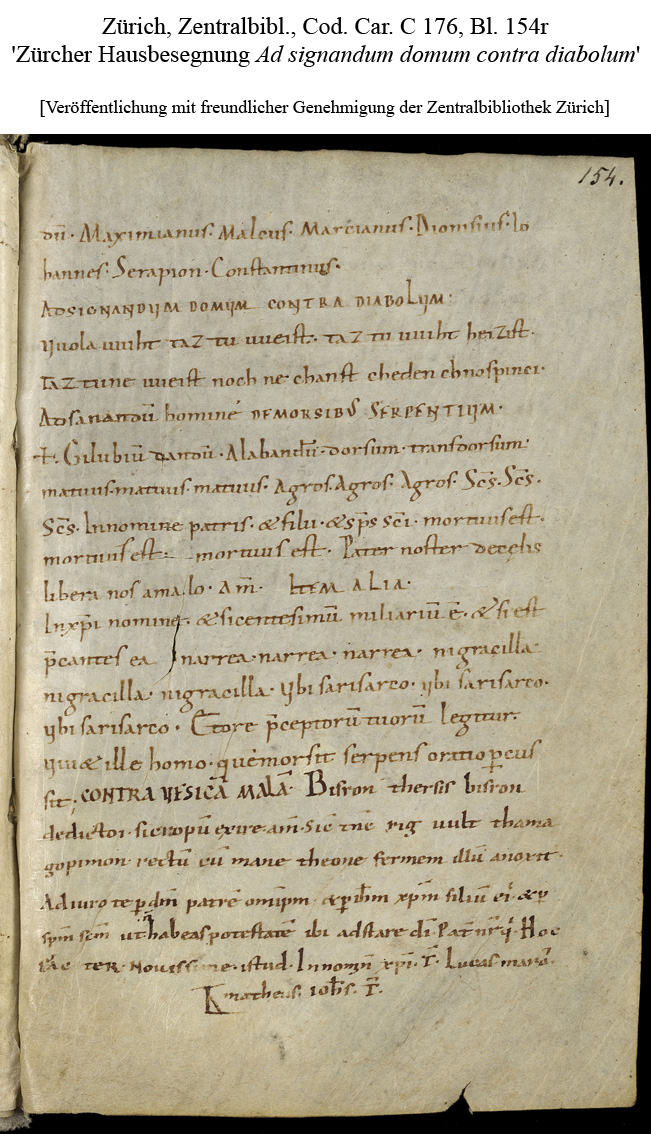 Zürich, Zentralbibl., Cod. Car. C 176, Bl. 154r
'Zürcher Hausbesegnung Ad signandum domum contra diabolum'
[Veröffentlichung mit freundlicher Genehmigung der Zentralbibliothek Zürich]
154.
dũ· Maximianus· Malcus· Marcianus· Dionisius· Io
hannes· Serapion· Constantinus·
AD SIGNANDUM DOMUM CONTRA DIABOLUM·
Uuola uuiht taz tu uueist· taz tu uuiht heizist·
Taz tu ne uueist noch ne chanst cheden chnospinci·
AD sanandũ hominẽ DE MORSIBUS SERPENTIUM·
+· Gilubiũ · Alabandũ· dorsum· transdorsum·
matuus· matuus· matuus· Agros· Agros· Agros· Scs̃· Scs̃·
Scs̃· In nomine patris· & filii· & sps̃ sc̃i· mortuus est·
mortuus est· mortuus est· Pater noster de celis
libera nos a malo· Am̃· ITEM ALIA·
In xp̃i nomine· & si centesimũ miliariũ ẽ· & si est
p̃cantes ea In narrea· narrea· narrea· nigracilla·
nigracilla· nigracilla· Ubi sarisarco· ubi sarisarco·
ubi sarisarco· p̃ceptorũ tuorũ legitur·
uiu& ille homo· quẽ morsit serpens oratio percus
sit· CONTRA UESICÃ MALÃ· Bisron thersis bisron
rig uult thama
gopimon rectũ cũ mane theone fermem illũ
Adiuro te p dm̃ patrẽ om̃ipm̃· & p ihm̃ xp̃m filiũ ei· & p
sp̃m sc̃m ut habeas potestatẽ ibi adstare Hoc
TER· Nouissime· istud· In nomiñ xp̃i· Lucas marc̃·
matheus· ioh̃s·